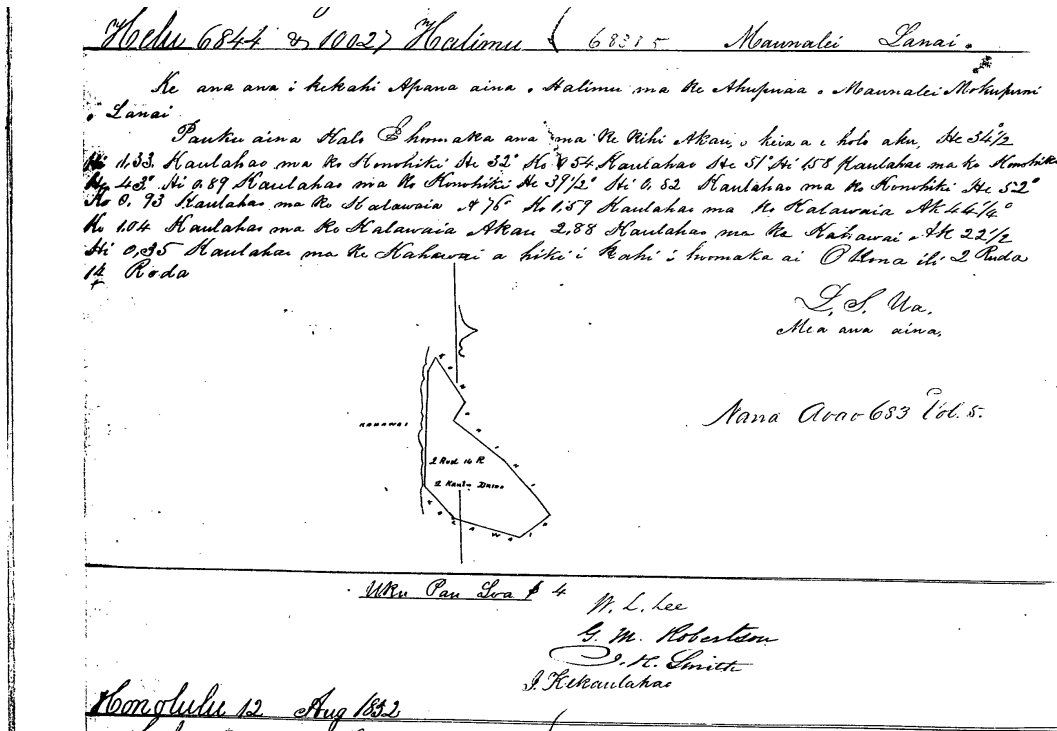 Helu 6844 & 10027 Halimu 6838 5 Maunalei Lanai.
Ke ana ana i kekahi Apana aina o Halimu ma ke Ahupuaa o Maunalei Mokupuni
o Lanai
Pauku aina Kalo E hoomaka ana ma ke kihi Akau, o keia a e holo aku, He 34 1/2
Hi 1,33 Kaulahao ma ko Konohiki He 32° Ko 0 54 Kaulahao He 51° Hi 1,58 Kaulahao ma ko Konohiki
He 43° Hi 0,89 Kaulahao ma ko Konohiki He 39 1/2° Hi 0,82 Kaulahao ma ko Konohiki He 52°
Ko 0,93 Kaulahao ma ko Kalawaia A 76° Ko 1,59 Kaulahao ma ko Kalawaia Ak 44 1/4°
Ko 1,04 Kaulahao ma ko Kalawaia Akau 2,88 Kaulahao ma ke Kahawai Ak 22 1/2
Hi 0,35 Kaulahao ma ke Kahawai a hiki i kahi i hoomaka ai O kona ili 2 Ruda
14 Roda
D. S. Ua.
Mea ana aina,
KONOHIKI
KAHAWAI
Nana Aoao 683 Vol. 5.
2 Rud 14 R
2 Kaul. Desimo
KALAWAIA
Uku Pau Loa $ 4
W. L. Lee
G. M. Robertson
J. H. Smith
J. Kekaulahao
Honolulu 12 Aug 1852